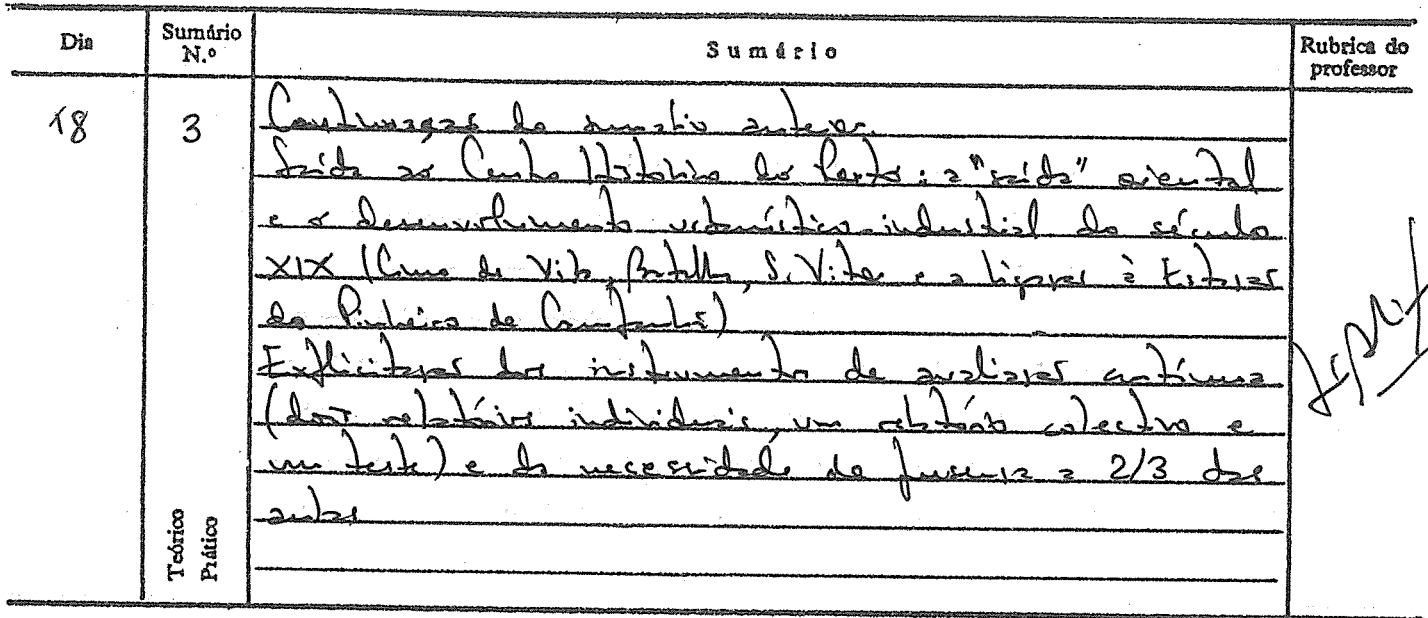 Dia
Sumário N.º
Sumário
Rubrica do professor
18
3
Continuação do sumário anterior.
Saída ao Centro Histórico do Porto: a "saída" oriental
e o desenvolvimento urbanístico-industrial do século
XIX (Cimo de Vila, Batalha, S. Vitor e a ligação à Estação
do Pinheiro de Campanhã)
Explicitação dos instrumentos de avaliação contínua
(dois relatórios individuais, um relatório colectivo e
um teste) e da necessidade de presença a 2/3 das
aulas
Teórico
Prático